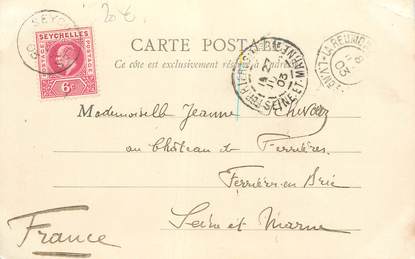 20 €
SEYCHELLES
POSTAGE
POSTAGE
6c
CARTE POSTALE
Ce côté est exclusivement réservé à l'adresse
LA REUNION
03
SEINE-ET-MARNE
03
Mademoiselle Jeanne
au Château de Ferrières
Ferrières en Brie
Seine et Marne
France